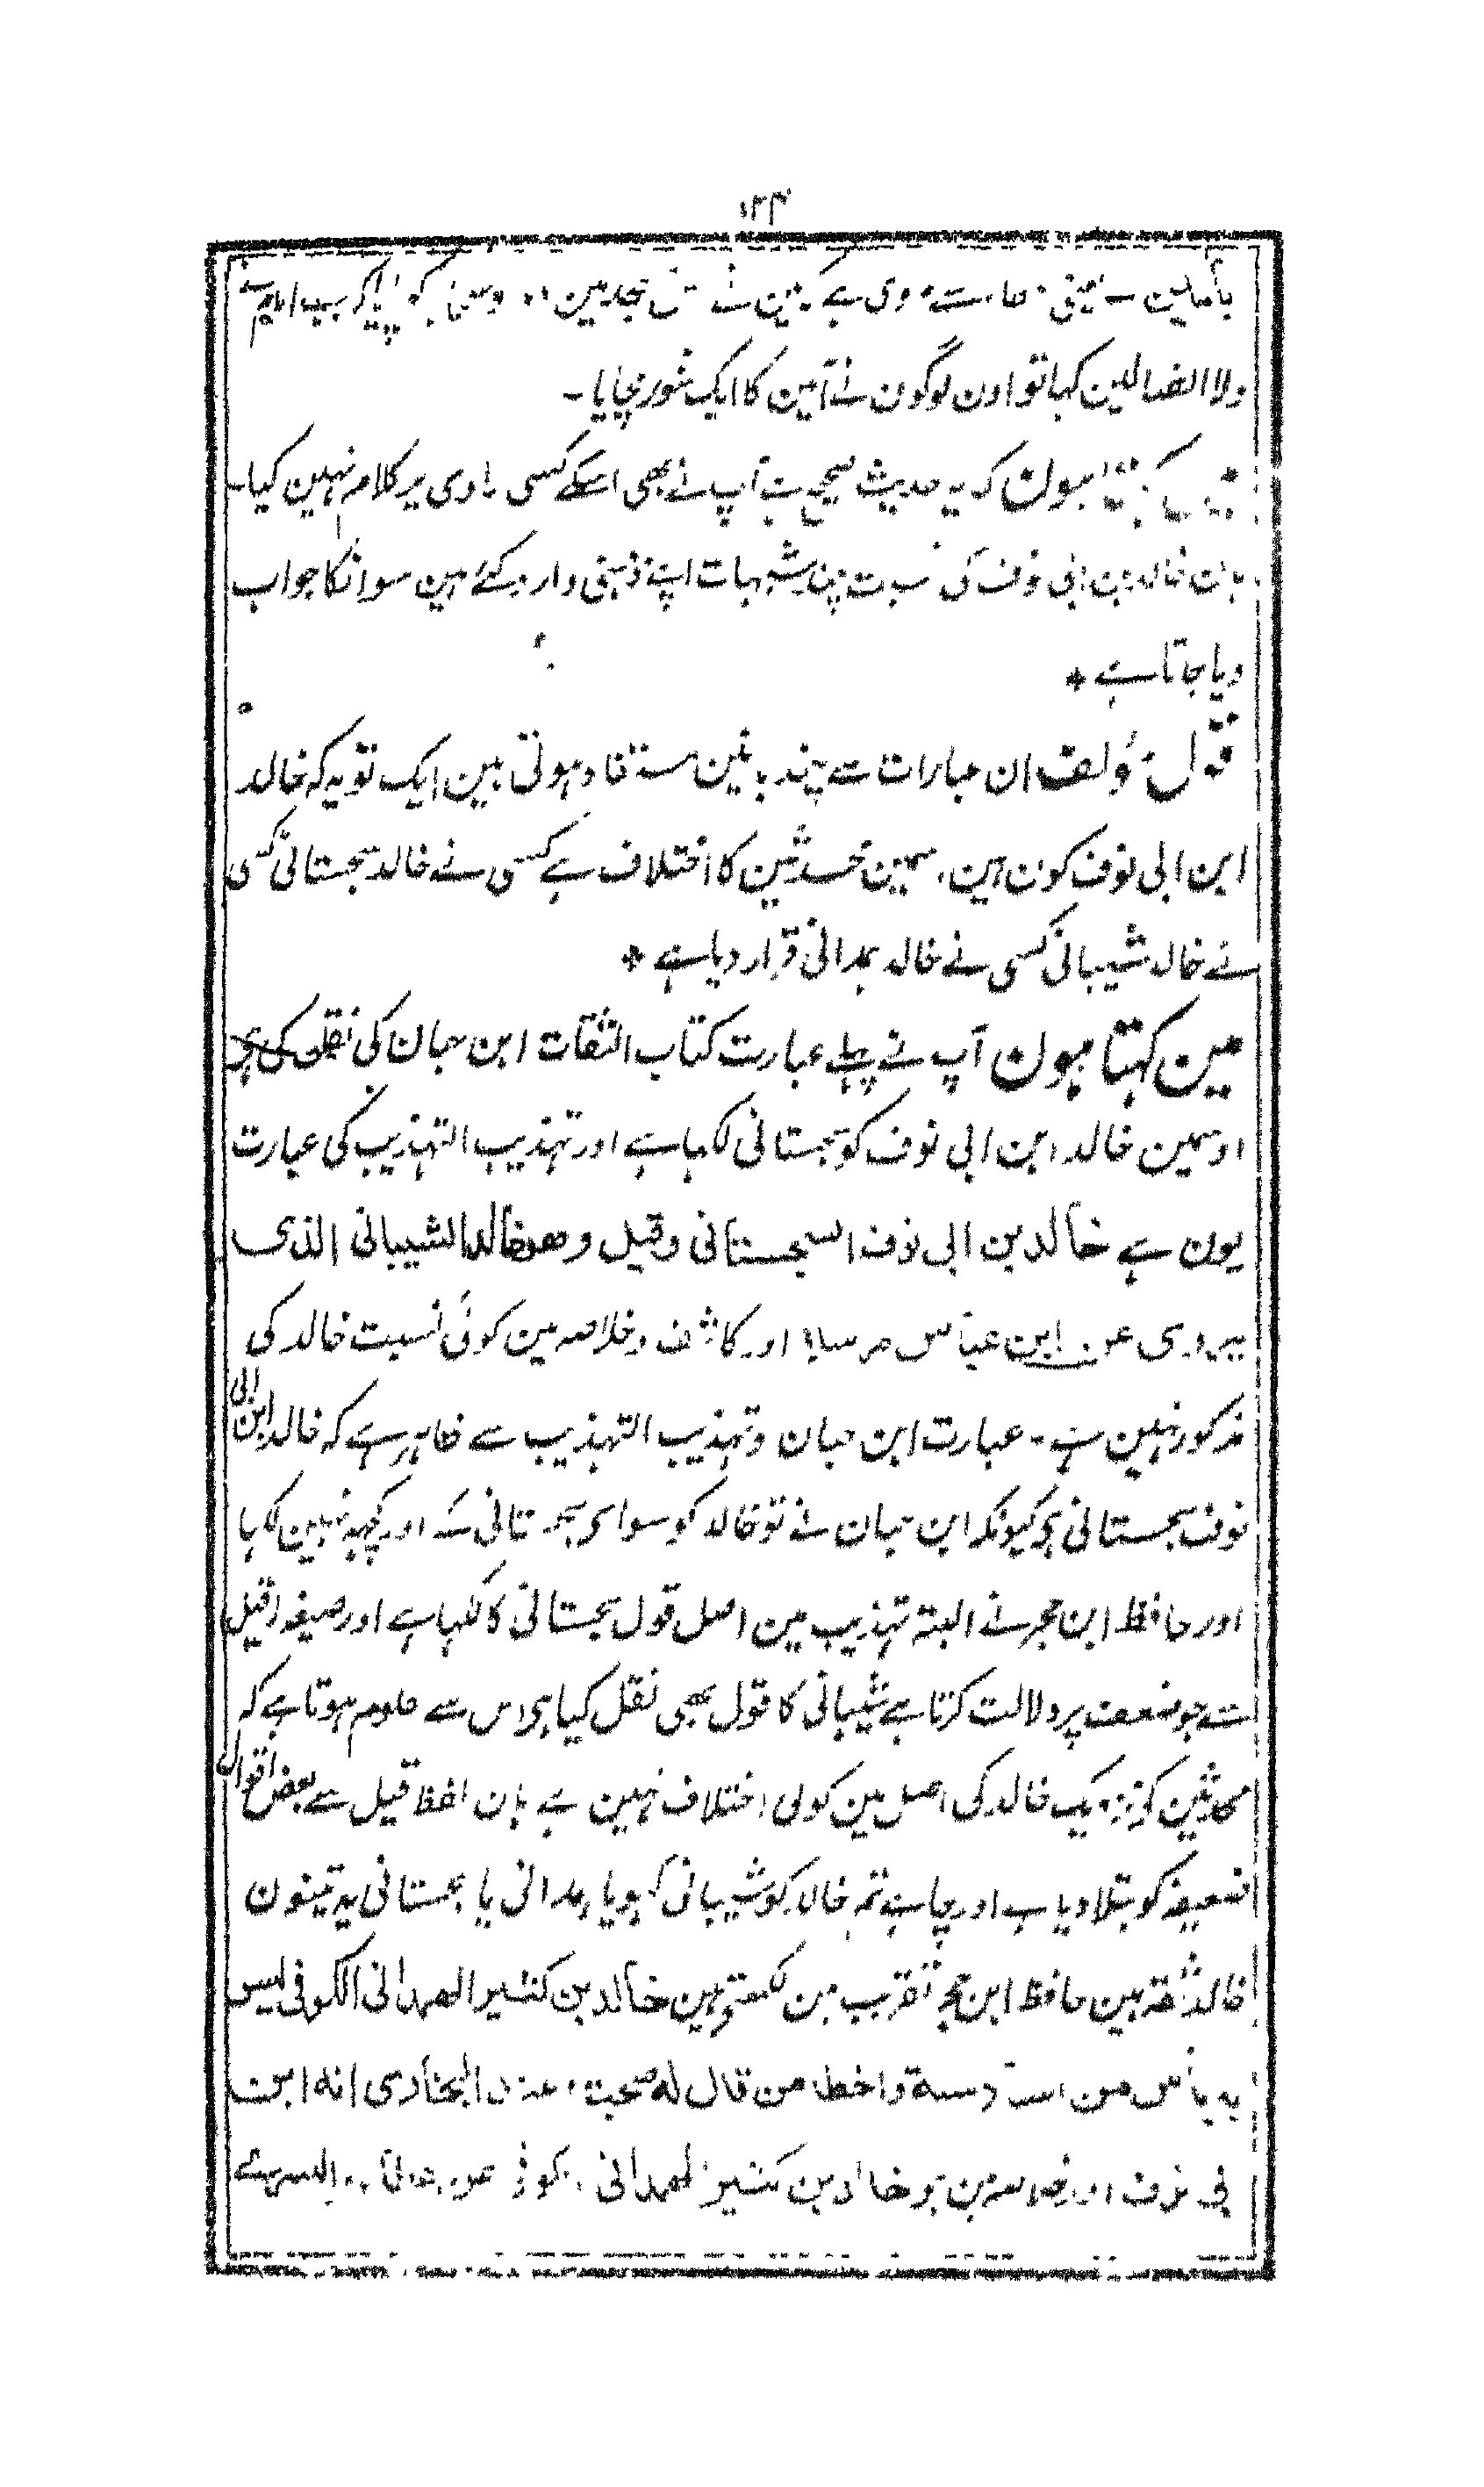 ۱۲۴
بآملین یعنی عطا سے مروی ہے کہ مین نے اس مسجد مین دو سو صحابہ کو پایا کہ جب امام نے
ولا الضالین کہا تو اون لوگون نے آمین کا ایک شور مچایا۔
مین کہتا ہون کہ یہ حدیث صحیح ہے آپ نے بھی اسکے کسی راوی پر کلام نہین کیا۔
ہان خالد بن ابی نوف کی نسبت چند شبہات اپنے ذہنی وارد کئے ہین سو انکا جواب
دیا جاتا ہے *
قول مؤلف ان عبارات سے چند باتین مستفاد ہوتی ہین ایک تو یہ کہ خالد
ابن ابی نوف کون ہین۔ اسمین محدثین کا اختلاف ہے کسی نے خالد سجستانی کسی
نے خالد شیبانی کسی نے خالد ہمدانی قرار دیا ہے *
مین کہتا ہون آپ نے پہلے عبارت کتاب الثقات ابن حبان کی نقل کی ہے
اوسمین خالد ابن ابی نوف کو سجستانی لکہا ہے اور تہذیب التہذیب کی عبارت
یون ہے خالد بن ابی نوف السجستانی وقیل وهو خالد الشیبانی الذی
یروی عن ابن عباس مرسلا اور کاشف وخلاصہ مین کوئی نسبت خالد کی
مذکور نہین ہے۔ عبارت ابن حبان و تہذیب التہذیب سے ظاہر ہے کہ خالد ابن ابی
نوف سجستانی ہے کیونکہ ابن حبان نے تو خالد کو سوا ے سجستانی کے اور کچہہ نہین لکہا
اور حافظ ابن حجر نے البتہ تہذیب مین اصل قول سجستانی کا لکہا ہے اور صیغہ قیل
سے جو ضعف پر دلالت کرتا ہے شیبانی کا قول بھی نقل کیا ہے اس سے معلوم ہوتا ہے کہ
محدثین کے نزدیک خالد کی اصل مین کوئی اختلاف نہین ہے ہان لفظ قیل سے بعض اقوال
ضعیفہ کو بتلا دیا ہے اور چاہے تم خالد کو شیبانی کہو یا ہمدانی یا سجستانی یہ تینون
خالد ثقہ ہین حافظ ابن حجر تقریب مین لکھتے ہین خالد بن کثیر الهمدانی الکوفی لیس
به بأس من السادسة واخطا من قال له صحبة وعند البخاری انه ابن
ابی نوف اور خلاصہ مین ہے خالد بن کثیر الهمدانی الکوفی عن